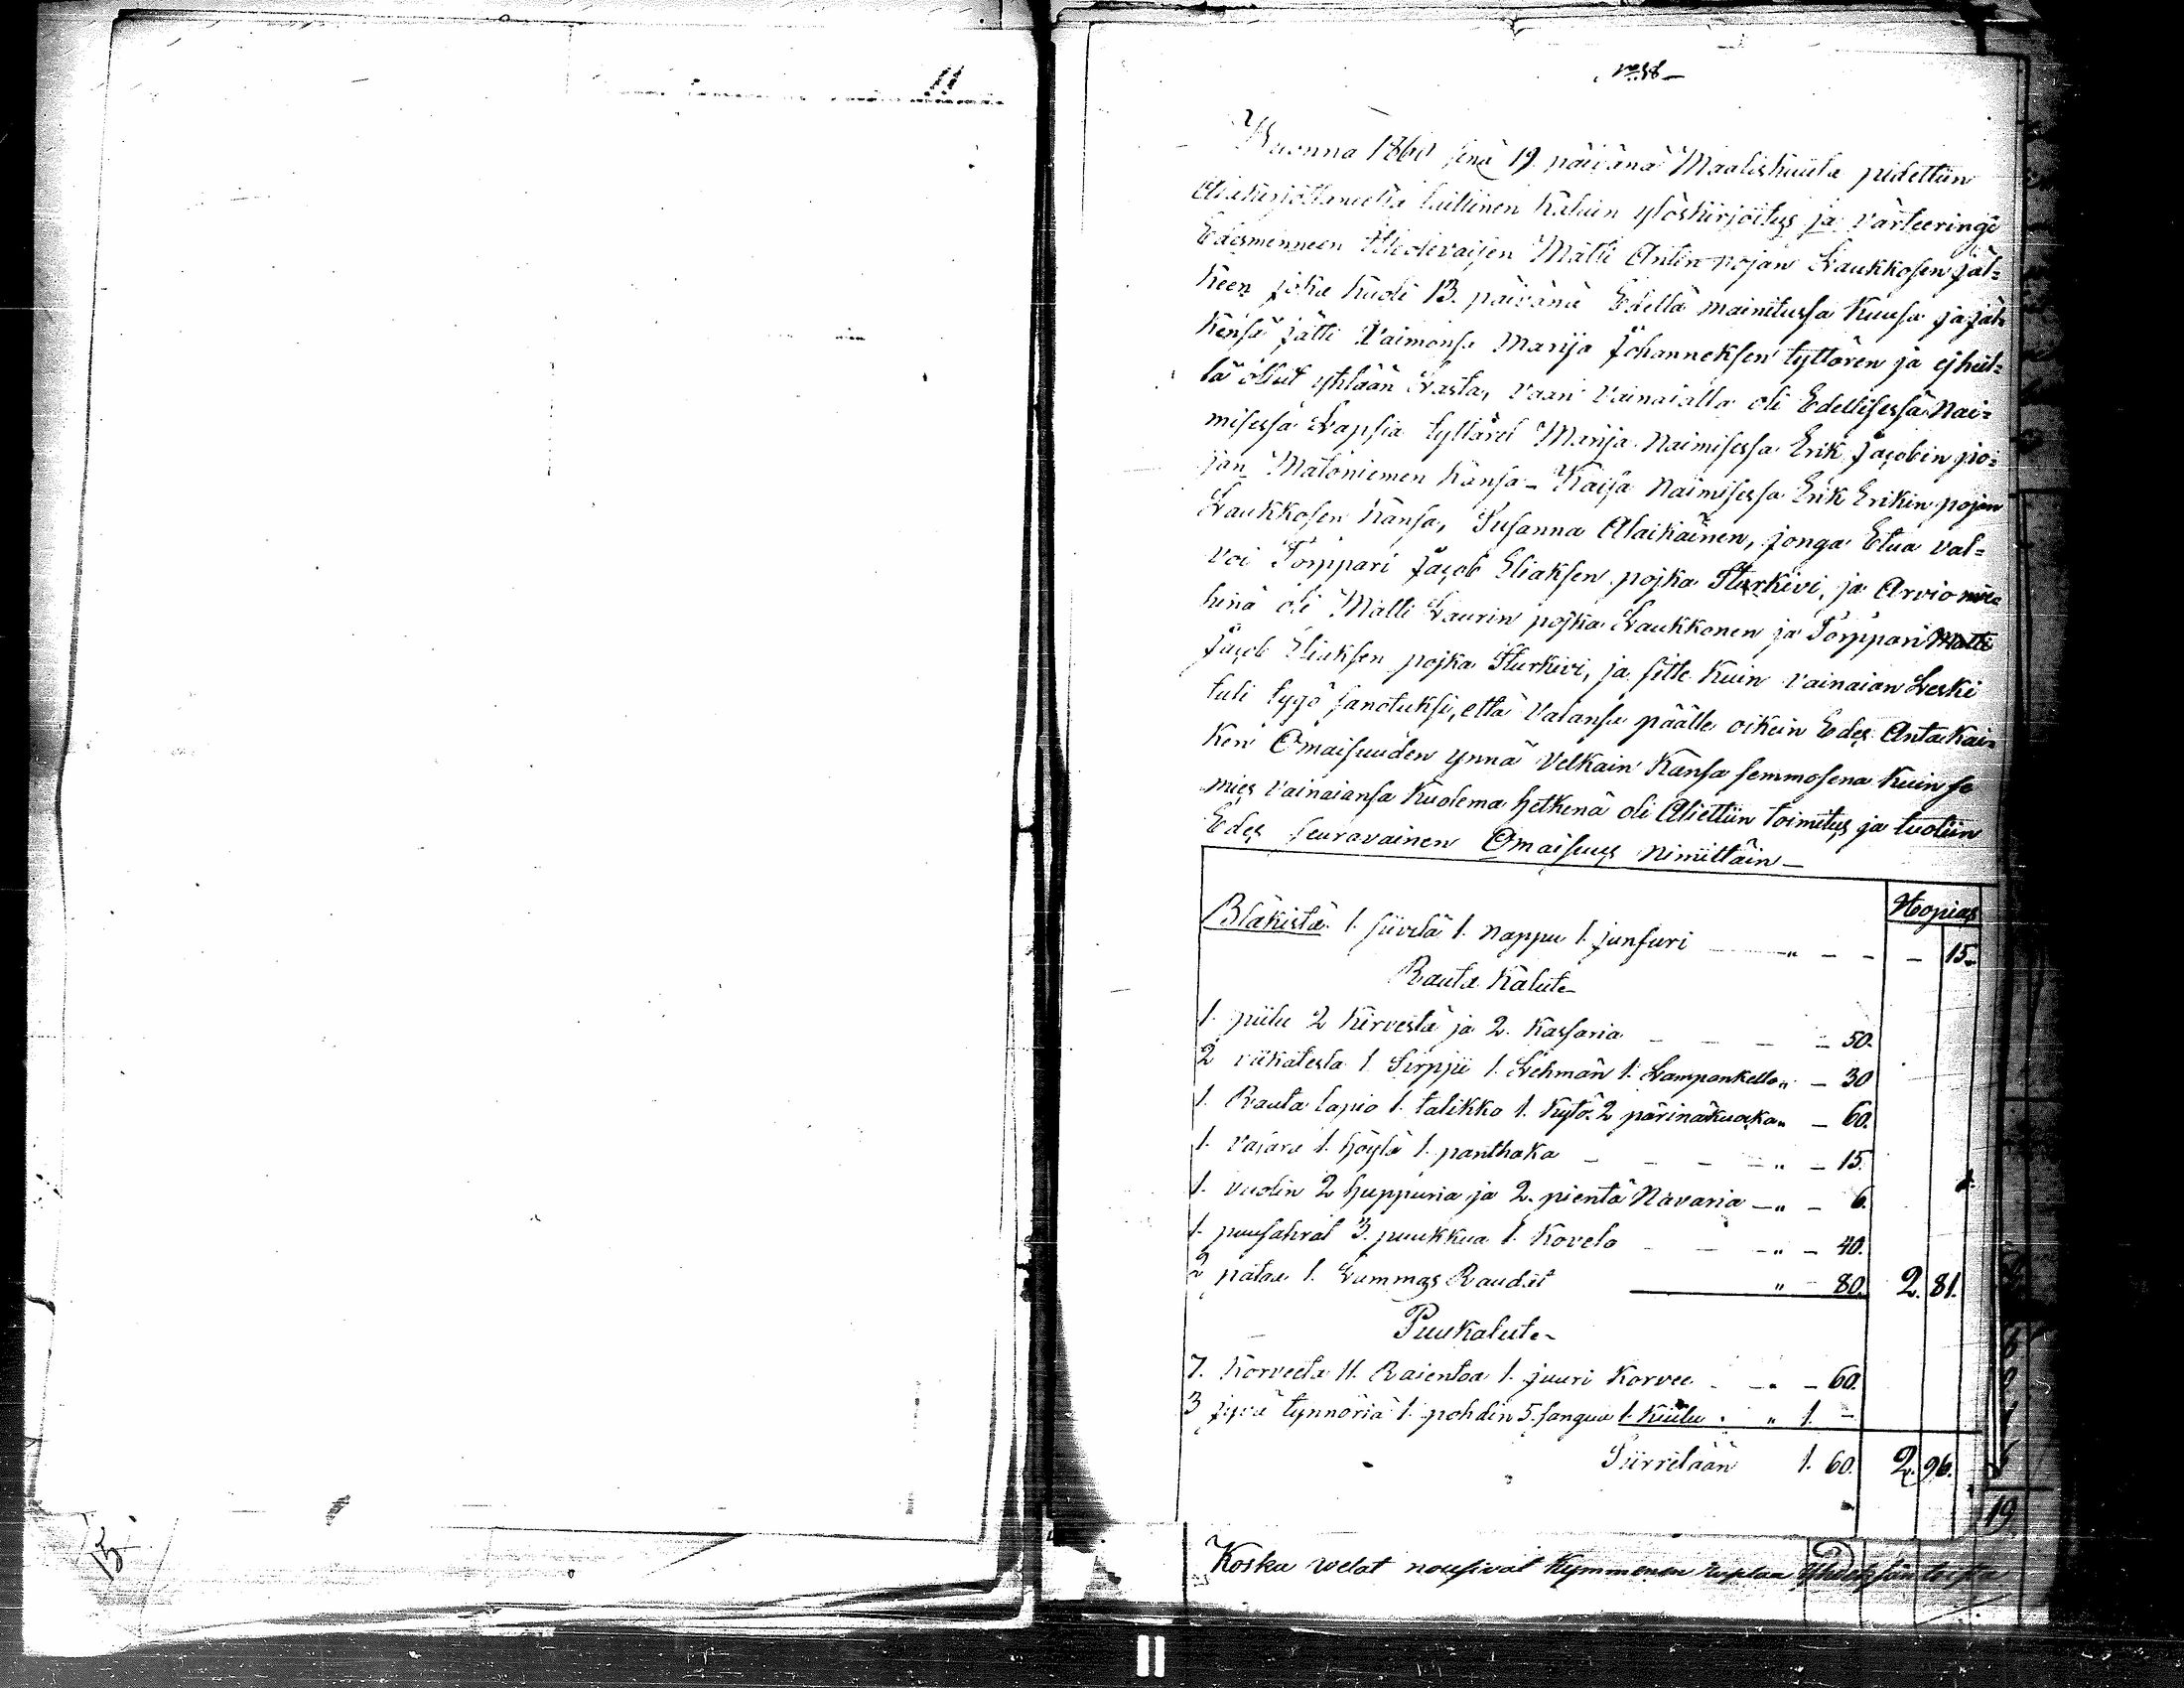 11
No 58
Vuonna 1860 sinä 19 päivänä Maaliskuula pidettiin
laillinen kaluin ylöskirjoitus ja värteeringi
Edesmenneen Itiellevaisen Matti Antin pojan Laukkosen jäl=
keen joka kuoli 13. päivänä Edellä mainitussa kuusa ja jäl=
kensä jätti Vaimonsa Marija Johanneksen tyttären ja ej heil=
lä ollut yhtään Lasta, vaan vainaialla oli Edellisessä Nai=
misessa Lapsia tyttäret Marija Naimisessa Erik Jacobin po=
jan Matoniemen kansa - Kaisa Naimisessa Erik Erikin pojan
Laukkosen kansa, Susanna Alaikäinen, jonga Etua val=
voi Torppari Jacob Eliaksen pojka Hurkivi, ja Arvio mie=
hinä oli Matti Laurin pojka Laukkonen ja Torppari Matti
Jacob Eliaksen pojka Hurkivi, ja sitte kuin vainaian Leski
tuli tygö sanotuksi, että Valansa päälle oikein Edes Antakai=
ken Omaisuuden ynnä Velkain kansa semmosena kuin se
mies vainaiansa kuolema hetkenä oli Aliettiin toimitus ja tuotiin
Edes seuravainen Omaisuus nimittäin -
Hopias
Bläkistä 1. siivilä 1. nappu 1. junsuri " - - - 15.
Rauta kalut -
1. piilu 2 kirvestä ja 2. kassaria - - - - 50.
2 viikatesta 1 Sirppii 1. Lehmän 1. Lampankello " - 30
1. Rauta lapio 1. talikko 1. kytö 2 pärinäkuoka " - 60.
1. vasara 1. höylä 1. panthaka - - - " - 15.
1. vuolin 2 huppuria ja 2. pientä Navaria - " - 6.
1. puusahrat 3. puukkua 1. Kovelo - - " - 40.
2 pataa 1. Lummas Raudat " - 80. 2. 81.
Puukalut -
7. Korveeta 11. Raientoa 1. juuri Korvee - " - 60.
3 jyvä tynnöriä 1. pohdin 5. sangua 1. kiulu . " 1. -
Siirretään 1. 60. 2. 96.
19
Koska welat nousivat kymmenen ruplaa yhdeksäntoista
15
11